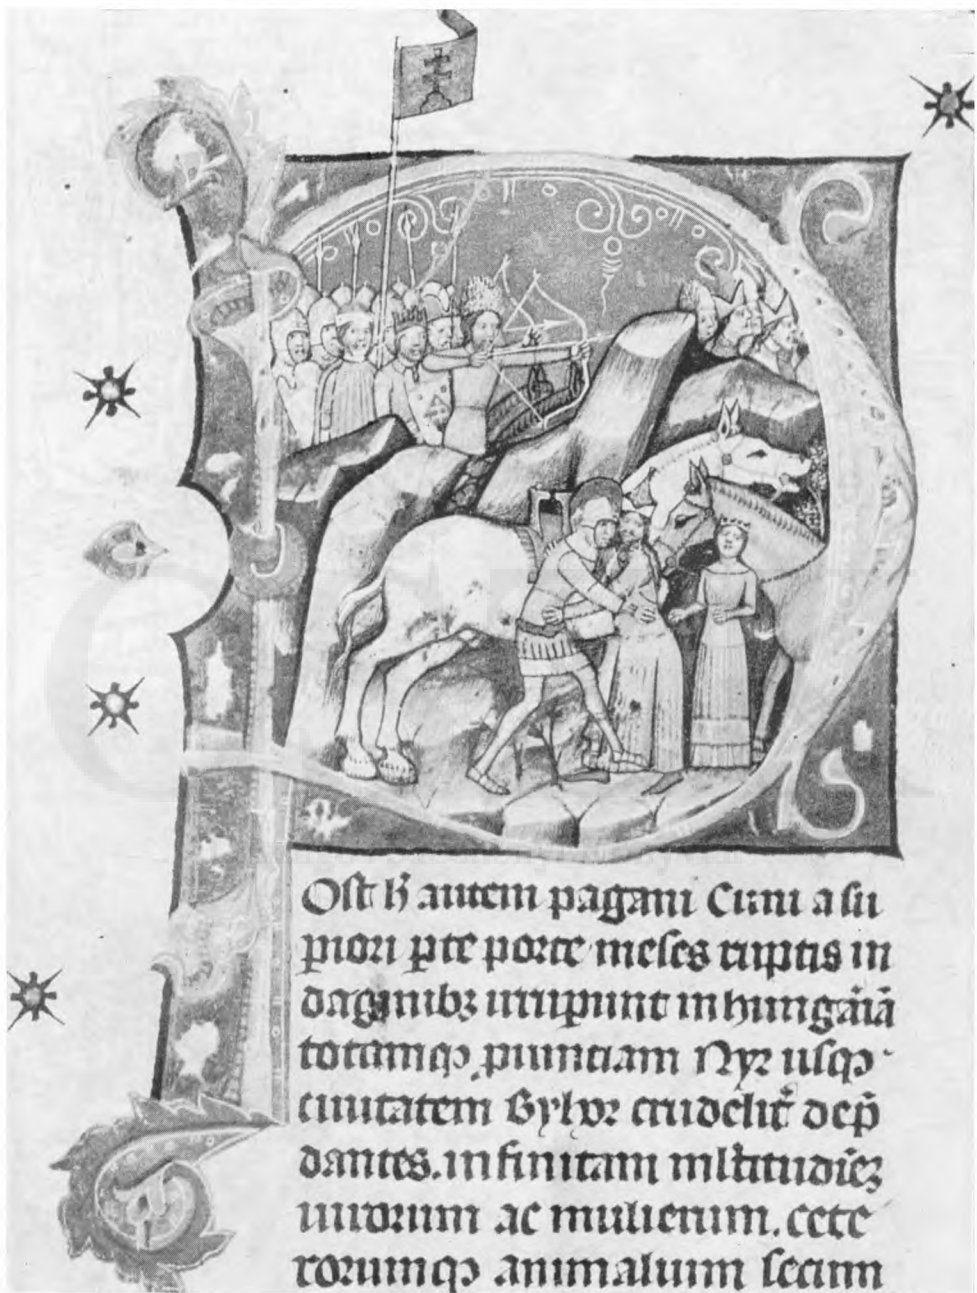 Ost h̄ autem pagani Cuni a su
ꝑiori ꝑte porte meses ruptis in
daginibꝫ irruꝑunt in hungāiā
totamqꝫ ꝓuinciam Nyr usqꝫ
ciuitatem Byhor crudelit᷑ dep̄
dantes. infinitam mltitudiēꝫ
uirorum ac mulierum. cete
rorumqꝫ animalium secum